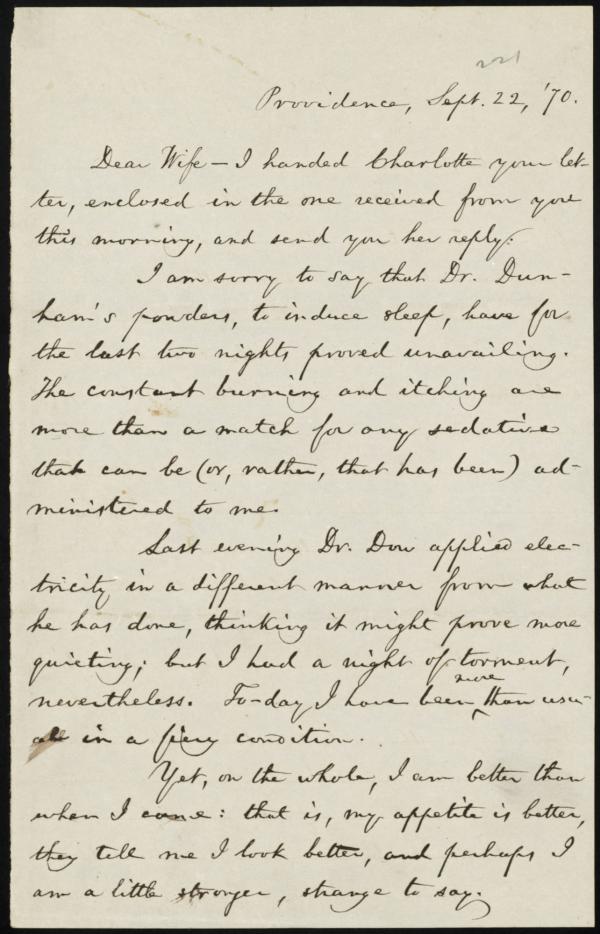 221
Providence, Sept. 22, '70.
Dear Wife — I handed Charlotte your let-
ter, enclosed in the one received from you
this morning, and send you her reply.
I am sorry to say that Dr. Dun-
ham's powders, to induce sleep, have for
the last two nights proved unavailing.
The constant burning and itching are
more than a match for any sedative
that can be (or, rather, that has been) ad-
ministered to me.
Last evening Dr. Dow applied elec-
tricity in a different manner from what
he has done, thinking it might prove more
quieting; but I had a night of torment,
more
nevertheless. To-day I have been ‸ than usu-
al in a fiery condition.
Yet, on the whole, I am better than
when I came: that is, my appetite is better,
they tell me I look better, and perhaps I
am a little stronger, strange to say.